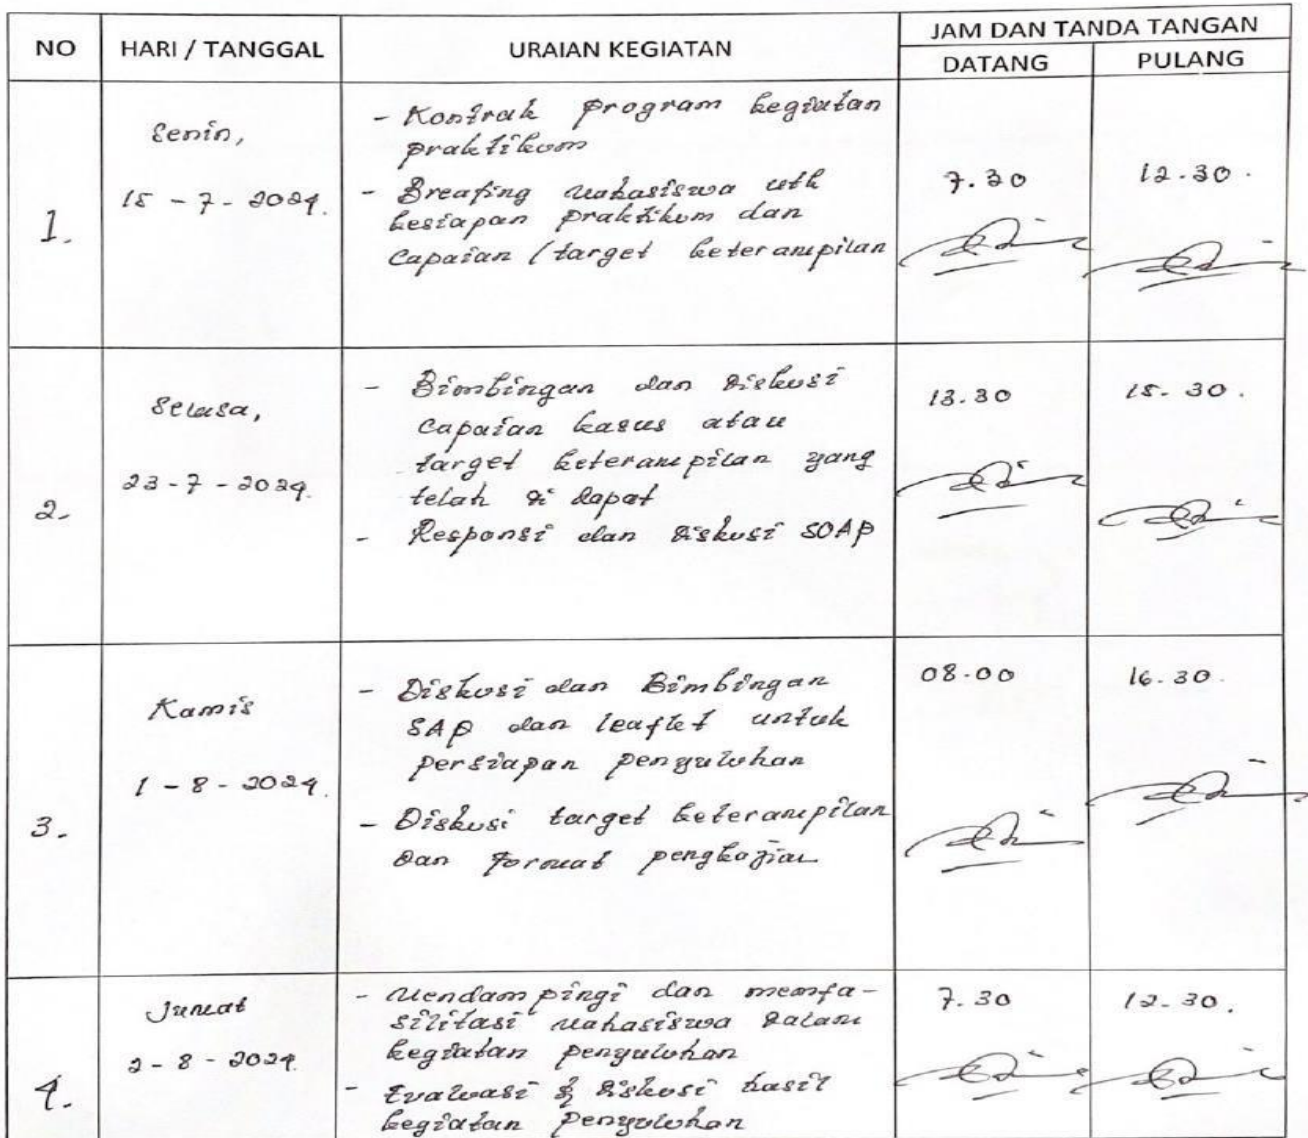 NO HARI / TANGGAL URAIAN KEGIATAN JAM DAN TANDA TANGAN
DATANG PULANG
1. Senin,
15 - 7 - 2024.
- Kontrak program kegiatan
praktikum
- Breafing mahasiswa utk
kesiapan praktikum dan
capaian / target keterampilan
7.30 12.30.
2. Selasa,
23 - 7 - 2024.
- Bimbingan dan diskusi
capaian kasus atau
target keterampilan yang
telah di dapat
- Responsi dan diskusi SOAP
13.30 15.30.
3. Kamis
1 - 8 - 2024.
- Diskusi dan Bimbingan
SAP dan leaflet untuk
persiapan penyuluhan
- Diskusi target keterampilan
dan format pengkajian
08.00 16.30.
4. Jumat
2 - 8 - 2024.
- Mendampingi dan memfa-
silitasi mahasiswa dalam
kegiatan penyuluhan
- Evaluasi & diskusi hasil
kegiatan penyuluhan
7.30 12.30.